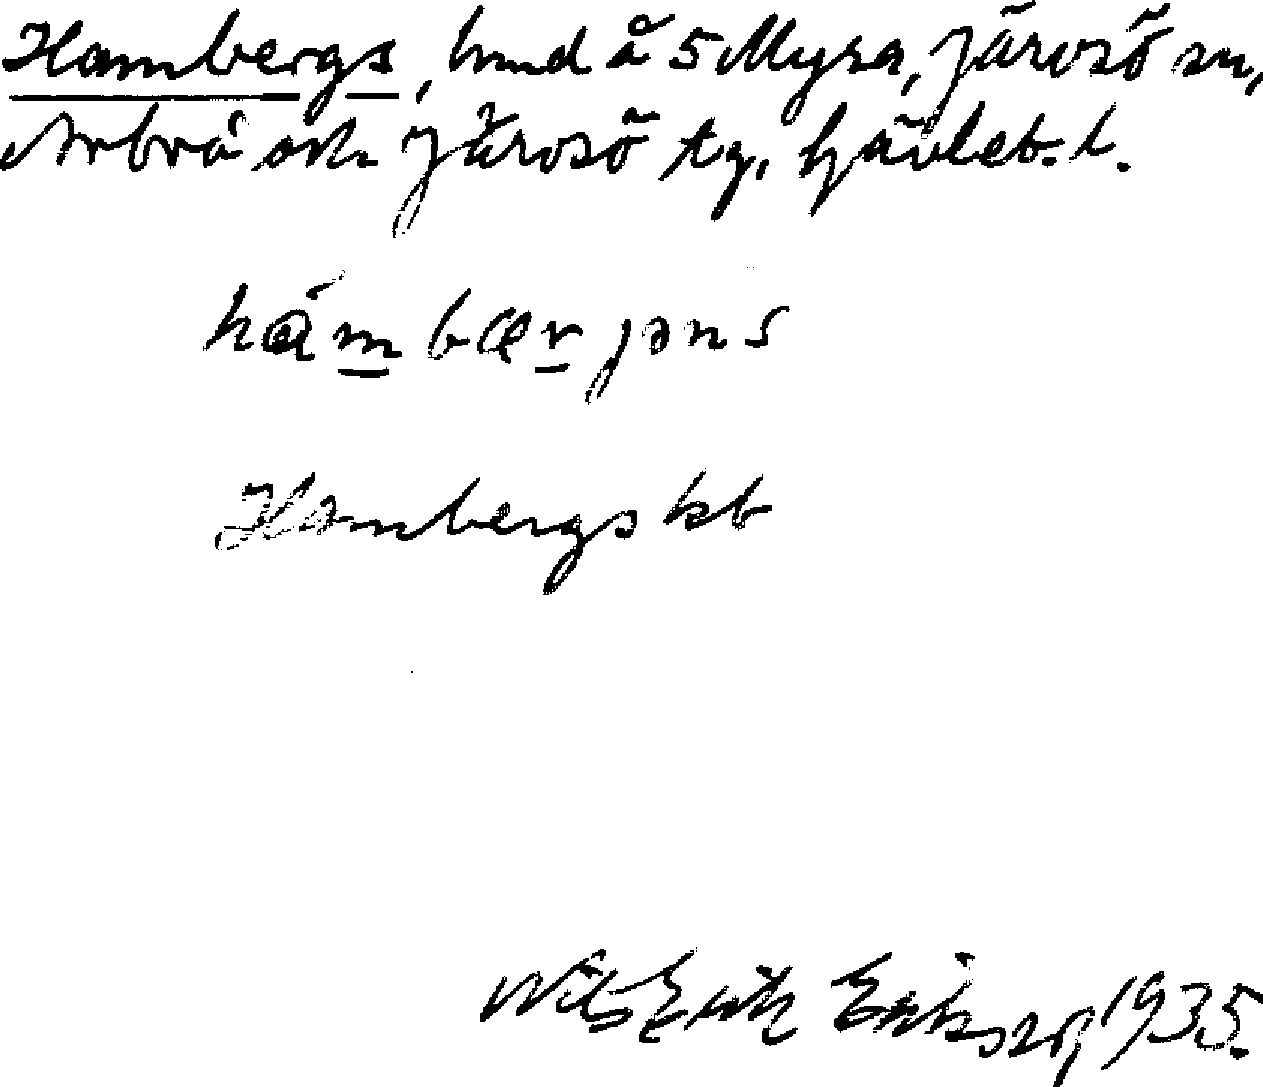 Hambergs, hmd å 5 Myra, Järvsö sn,
Arbrå och Järvsö tg, Gävleb. l.
hámbærjəns
Hambergs kb
Nils Erik Eriksson 1935.